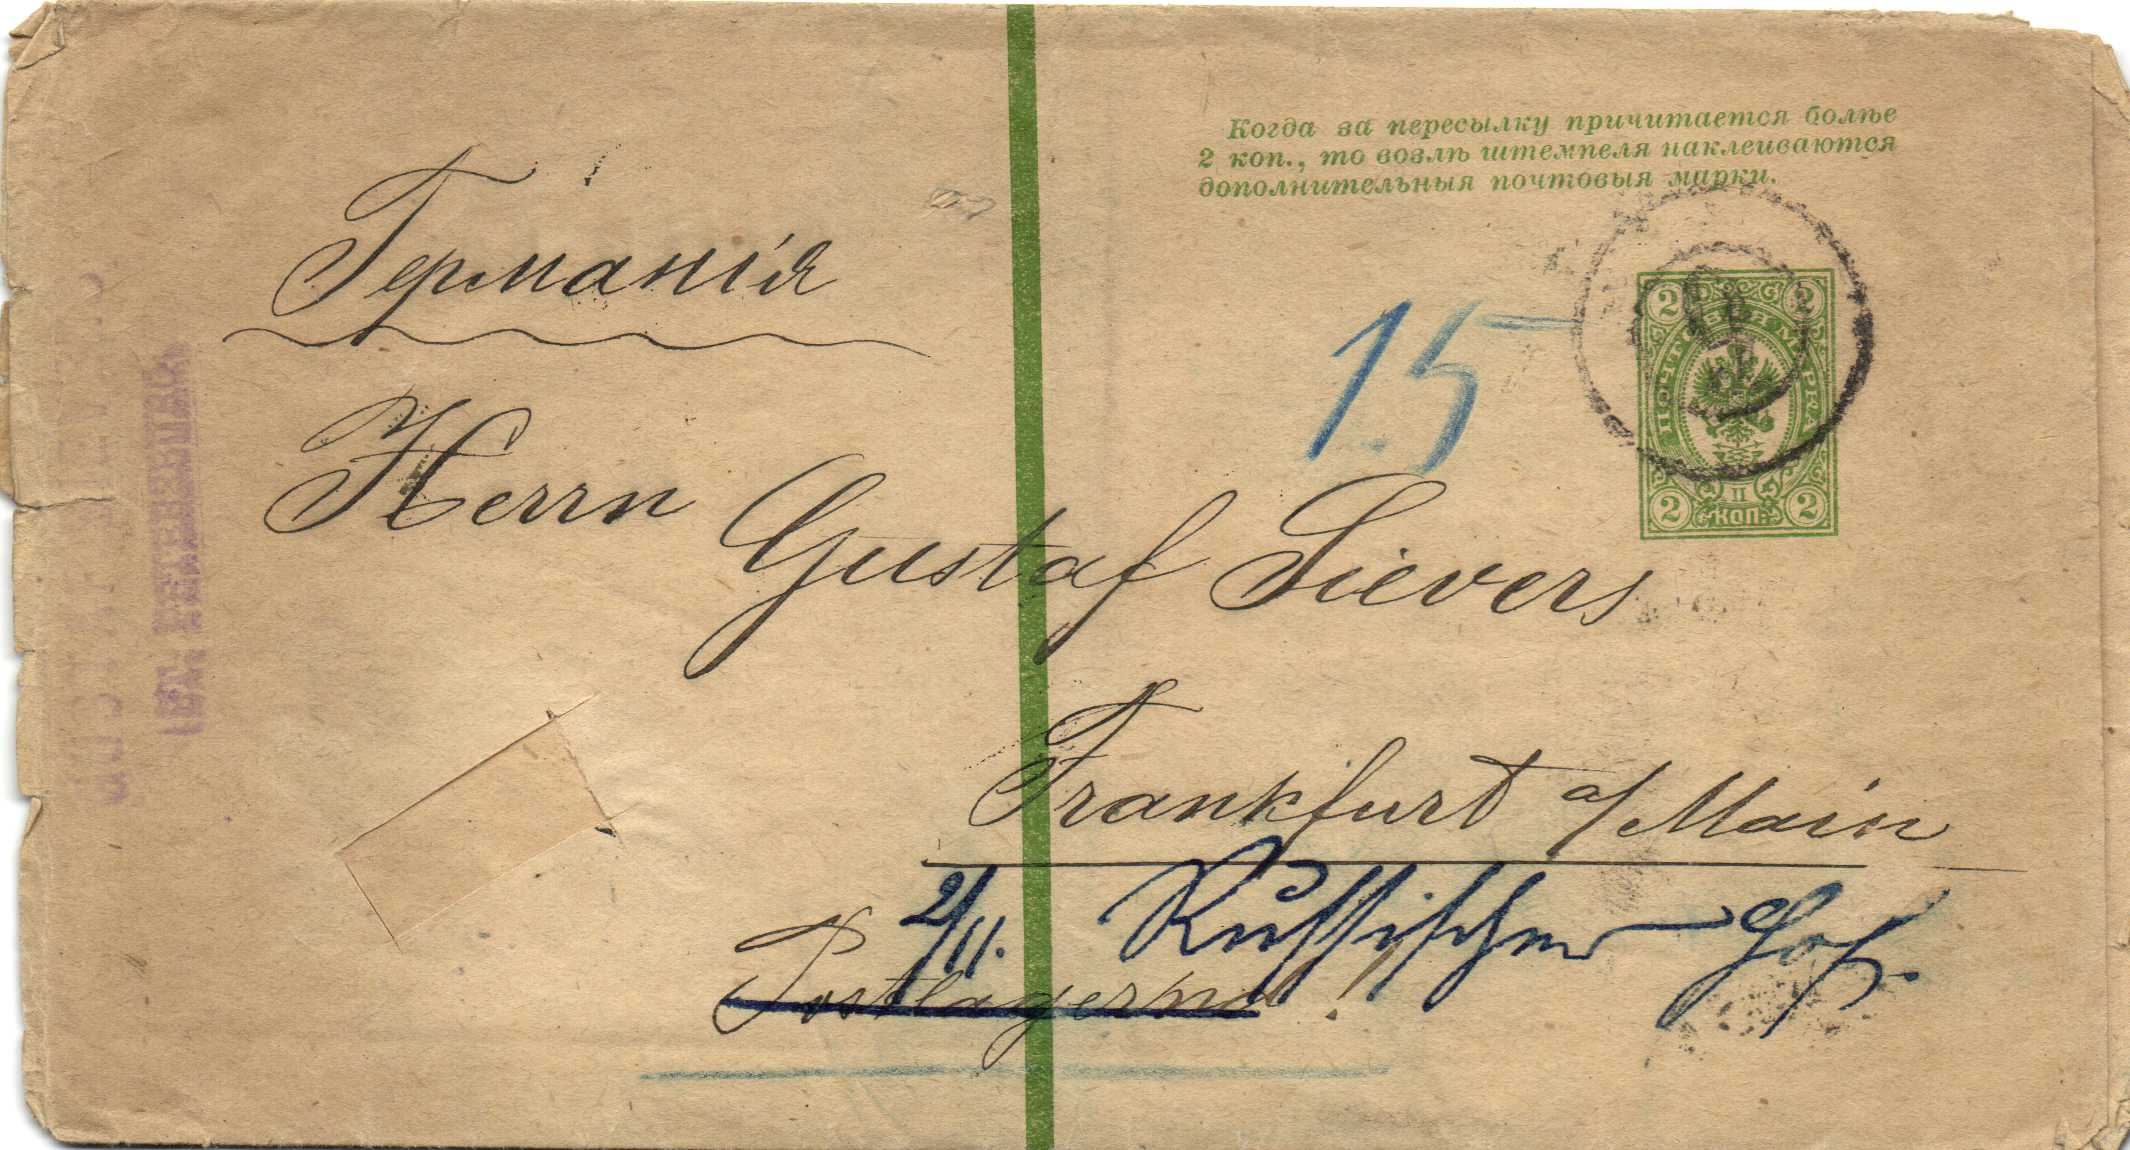 Когда за пересылку причитается болѣе
2 коп., то возлѣ штемпеля наклеиваются
дополнительныя почтовыя марки.
Германія
15
2 2
ПОЧТОВАЯ МАРКА
II
2 КОП. 2
Herrn
Gustaf Sievers
Frankfurt a/Main
2/11. Russischer Hof.
Postlagernd!